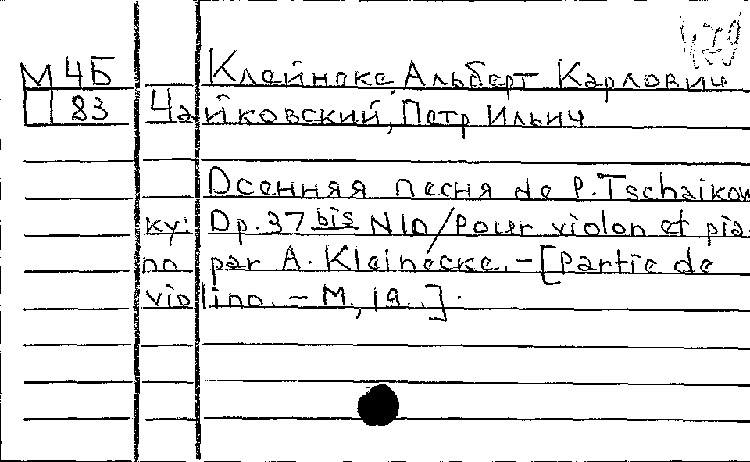 М 4Б Клейнеке Альберт Карлович
83 Чайковский, Петр Ильич
Осенняя песня de P. Tschaikow
ky: Op. 37 bis N10/Pour violon et pia-
no par A. Kleinecke. – [Partie de
violino. – М, ].